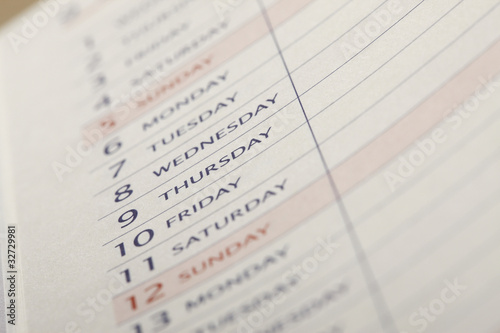 1
2 THURSDAY
3 FRIDAY
4 SATURDAY
5 SUNDAY
6 MONDAY
7 TUESDAY
8 WEDNESDAY
9 THURSDAY
10 FRIDAY
11 SATURDAY
12 SUNDAY
13 MONDAY
TUESDAY
WEDNESDAY
Adobe Stock | #32729981